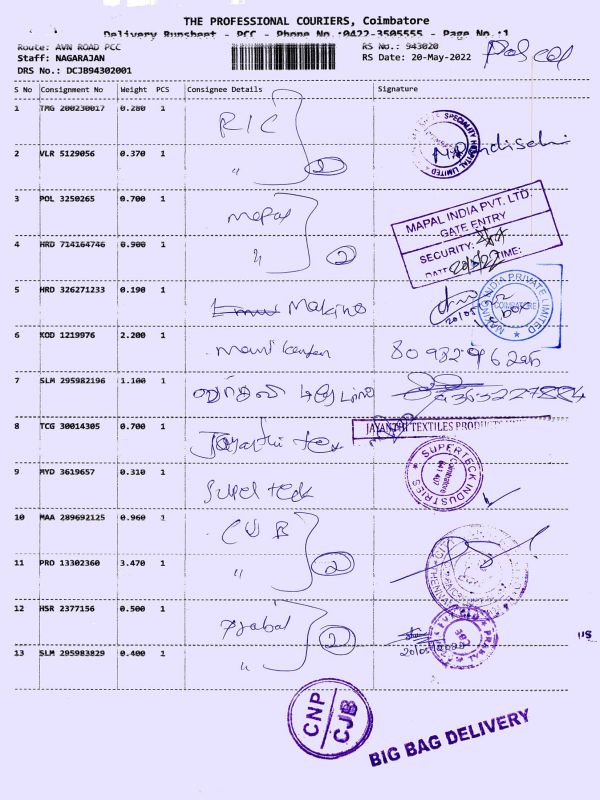 THE PROFESSIONAL COURIERS, Coimbatore
Delivery Runsheet - PCC - Phone No.:0422-3505555 - Page No.:1
Route: AVN ROAD PCC
RS No.: 943020
Staff: NAGARAJAN
RS Date: 20-May-2022
DRS No.: DCJB94302001
S No Consignment No Weight PCS Consignee Details Signature
1 TMG 200230017 0.280 1 RIC
SPECIALITY HOSPITAL LIMITED
2 VLR 5129056 0.370 1 " 2
3 POL 3250265 0.700 1 Mapal
MAPAL INDIA PVT. LTD.
GATE ENTRY
SECURITY:
DATE TIME:
4 HRD 714164746 0.900 1 " 2
5 HRD 326271233 0.190 1 Makino
MAKINO INDIA PRIVATE LIMITED
COIMBATORE
20/05
6 KOD 1219976 2.200 1
7 SLM 295982196 1.100 1
8 TCG 30014305 0.700 1 Jayanthi tex
JAYANTHI TEXTILES PRODUCTS
9 MYD 3619657 0.310 1 Super teck
SUPERTECK INDUSTRIES
Coimbatore
10 MAA 289692125 0.960 1 CUB
11 PRO 13302360 3.470 1 " 2
12 HSR 2377156 0.500 1 2
20/05/2022
13 SLM 295983829 0.400 1 "
CNP
CJB
BIG BAG DELIVERY